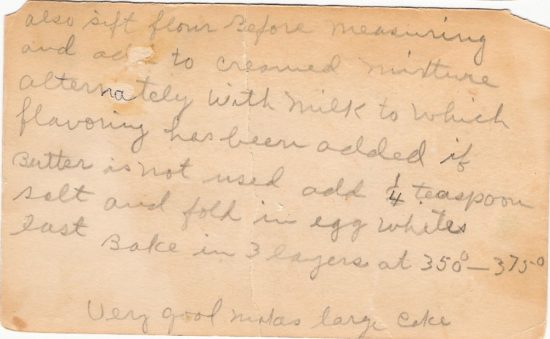 also sift flour Before measuring
and add to creamed mixture
alternately with milk to which
flavoring has been added if
Butter is not used add 1/4 teaspoon
salt and fold in egg whites
last Bake in 3 layers at 350° - 375°
Very good makes large cake